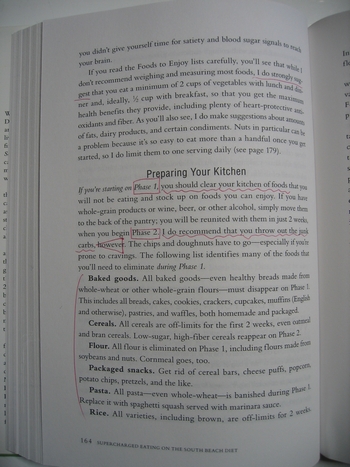 you didn't give yourself time for satiety and blood sugar signals to reach
your brain.
If you read the Foods to Enjoy lists carefully, you'll see that while I
don't recommend weighing and measuring most foods, I do strongly sug-
gest that you eat a minimum of 2 cups of vegetables with lunch and din-
ner and, ideally, ½ cup with breakfast, so that you get the maximum
health benefits they provide, including plenty of heart-protective anti-
oxidants and fiber. As you'll also see, I do make suggestions about amounts
of fats, dairy products, and certain condiments. Nuts in particular can be
a problem because it's so easy to eat more than a handful once you get
started, so I do limit them to one serving daily (see page 179).
Preparing Your Kitchen
If you're starting on Phase 1, you should clear your kitchen of foods that you
will not be eating and stock up on foods you can enjoy. If you have
whole-grain products or wine, beer, or other alcohol, simply move them
to the back of the pantry; you will be reunited with them in just 2 weeks,
when you begin Phase 2. I do recommend that you throw out the junk
carbs, however. The chips and doughnuts have to go—especially if you're
prone to cravings. The following list identifies many of the foods that
you'll need to eliminate during Phase 1.
Baked goods. All baked goods—even healthy breads made from
whole-wheat or other whole-grain flours—must disappear on Phase 1.
This includes all breads, cakes, cookies, crackers, cupcakes, muffins (English
and otherwise), pastries, and waffles, both homemade and packaged.
Cereals. All cereals are off-limits for the first 2 weeks, even oatmeal
and bran cereals. Low-sugar, high-fiber cereals reappear on Phase 2.
Flour. All flour is eliminated on Phase 1, including flours made from
soybeans and nuts. Cornmeal goes, too.
Packaged snacks. Get rid of cereal bars, cheese puffs, popcorn,
potato chips, pretzels, and the like.
Pasta. All pasta—even whole-wheat—is banished during Phase 1.
Replace it with spaghetti squash served with marinara sauce.
Rice. All varieties, including brown, are off-limits for 2 weeks
164 SUPERCHARGED EATING ON THE SOUTH BEACH DIET